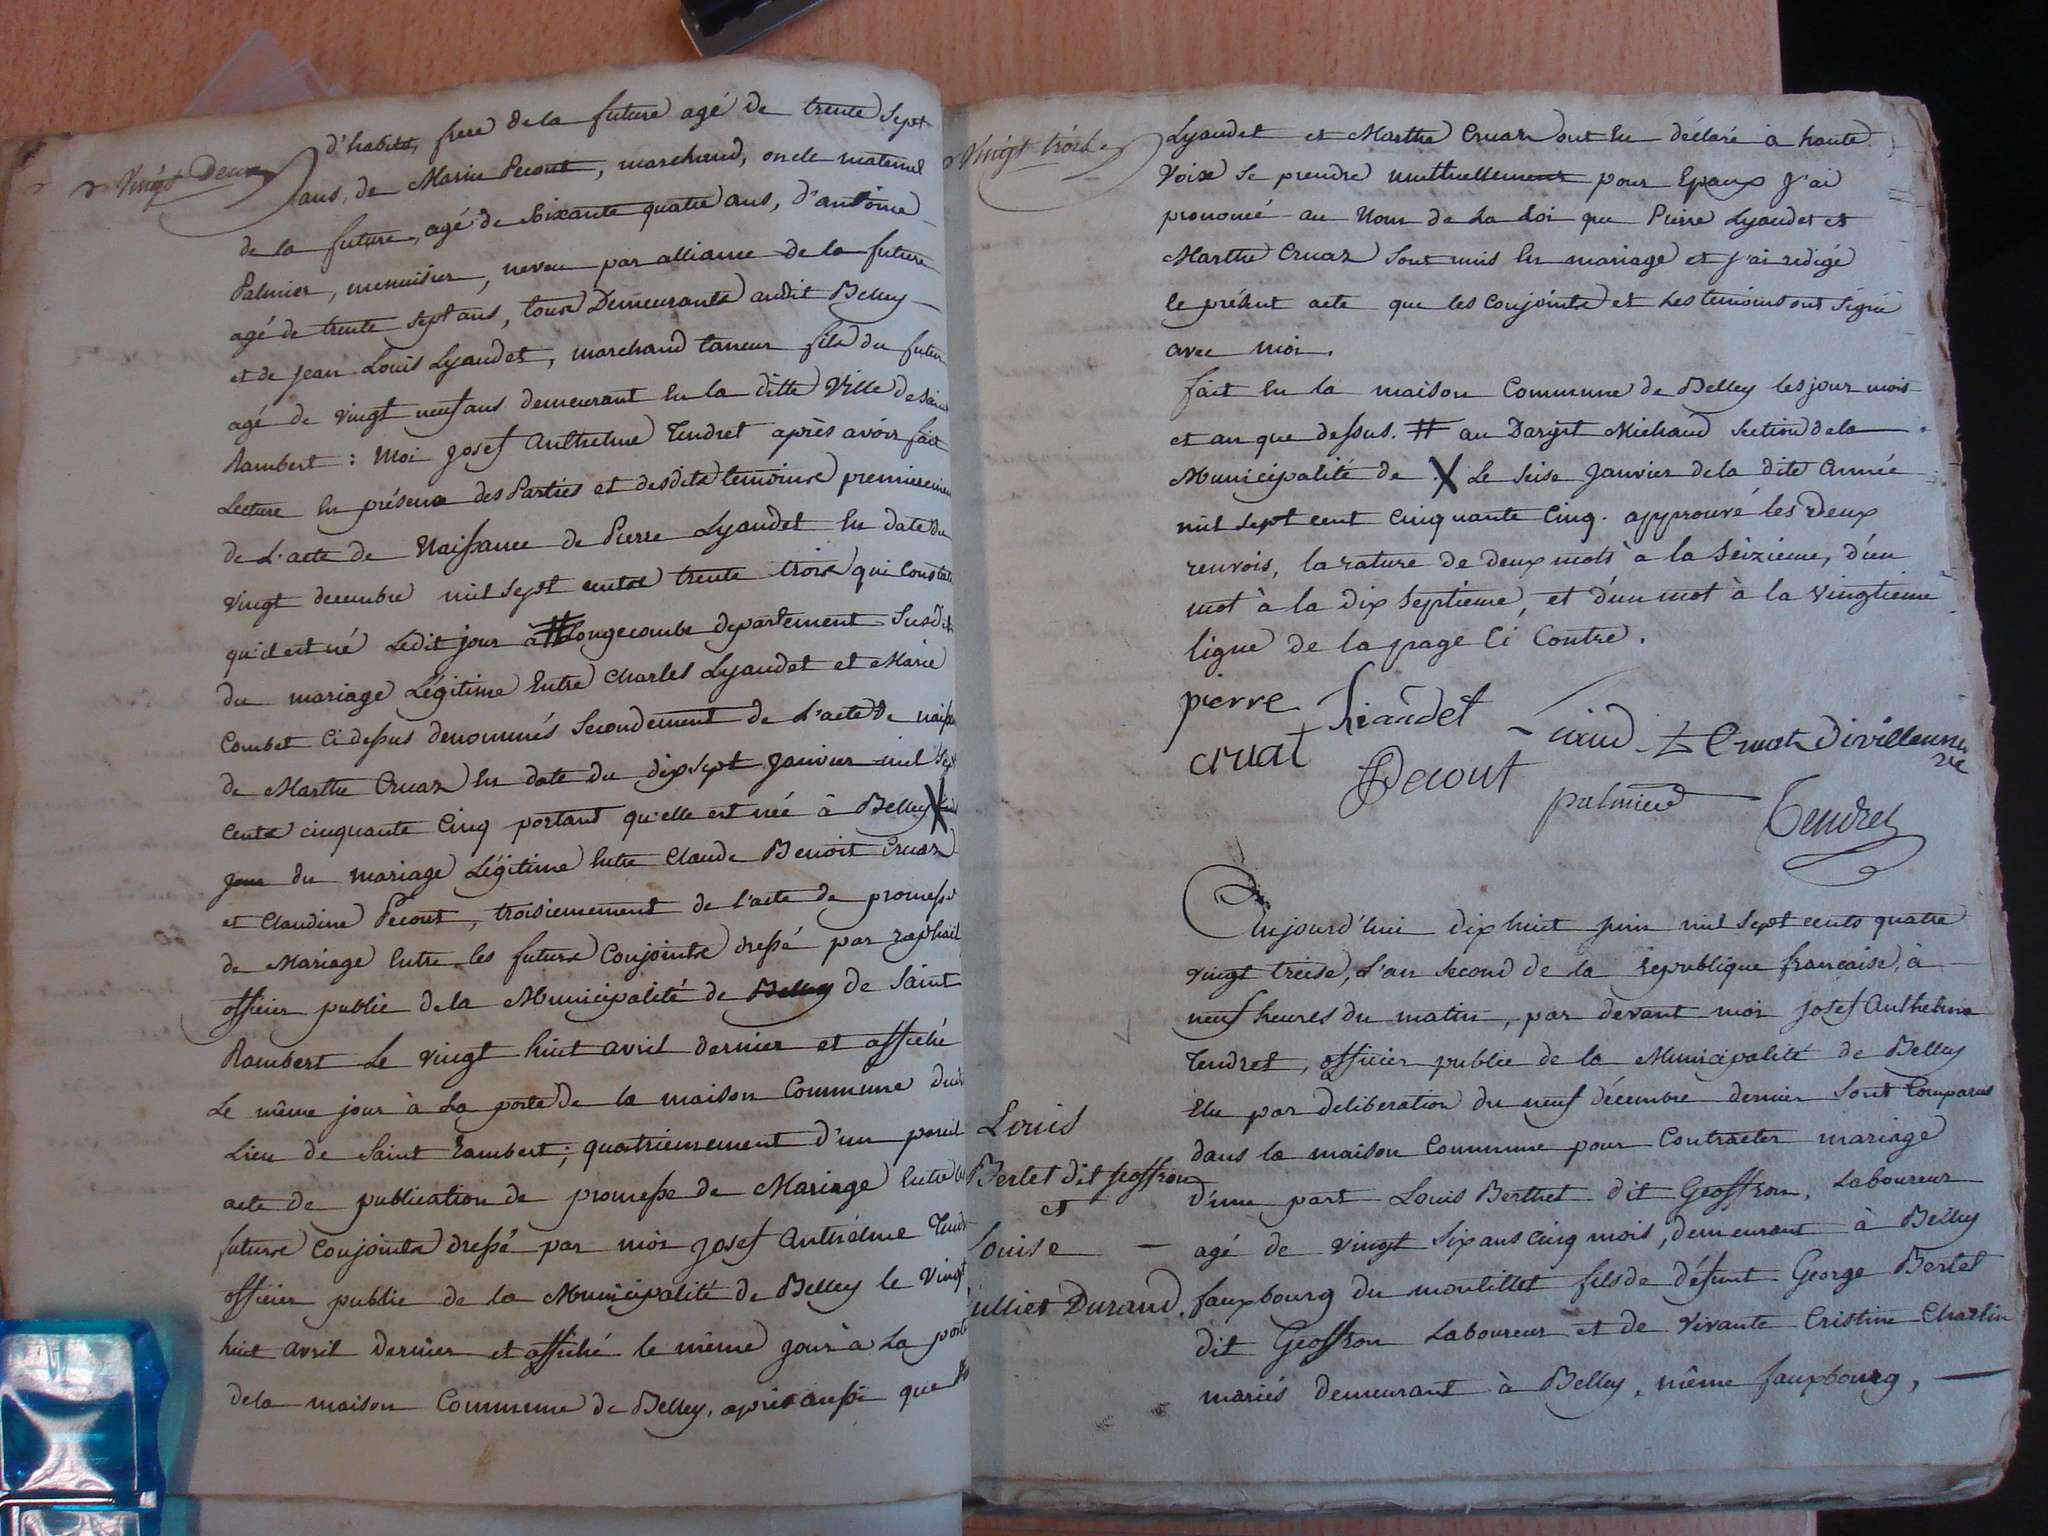 Vingt Deux
d'habits, frere de la future agé de trente sept
ans, de Marin Pecout, marchand, oncle maternel
de la future, agé de soixante quatre ans, d'antoine
Palmier, menuisier, neveu par alliance de la future
agé de trente sept ans, tous Demeurants audit Belley
et de Jean Louis Lyaudet, marchand taneur fils du futur
agé de vingt neuf ans demeurant en la ditte Ville de Saint
Rambert : Moi Josef Anthelme Tendret après avoir fait
Lecture en présence des Parties et desdits temoins premierement
de L'acte de Naissance de Pierre Lyaudet en date du
vingt decembre mil sept cents trente trois qui constate
qu'il est né Ledit jour à # Longecombe departement Susdit
du mariage Légitime Entre Charles Lyaudet et Marie
Combet Ci dessus denommés Secondement de L'acte de naissance
de Marthe Cruaz en date du dix sept Janvier mil sept
cents cinquante Cinq portant qu'elle est née à Belley X
jour du mariage Légitime Entre Claude Benoit Cruaz
et Claudine Pecout, troisiemement de l'acte de promesse
de Mariage Entre les futurs Conjoints dressé par raphael
officier public de la Municipalité de Belley de Saint
Rambert Le vingt huit avril dernier et affiché
Le même jour à La porte de la maison Commune dudit
Lieu de Saint Rambert ; quatriemement d'un pareil
acte de publication de promesse de Mariage Entre les
futurs Conjoints dressé par moi Josef Anthelme Tendret
officier public de la Municipalité de Belley le Vingt
huit avril dernier et affiché le même jour à La porte
de la maison Commune de Belley, après aussi que
Vingt trois
Lyaudet et Marthe Cruaz ont Eu déclaré à haute
Voix Se prendre mutuellement pour Epoux J'ai
prononcé au Nom de La Loi que Pierre Lyaudet et
Marthe Cruaz Sont unis En mariage et j'ai redigé
le présent acte que les Conjoints et Les temoins ont Signé
avec moi.
fait En la maison Commune de Belley les jour mois
et an que dessus. # au Dargit Michaud Section de la
Municipalité de . X Le seise Janvier de la dite Année
mil sept cent cinquante Cinq. approuvé les Deux
renvois, la rature de deux mots à la Seizieme, d'un
mot à la dix septieme, et d'un mot à la vingtieme
ligne de la page Ci Contre.
pierre Liaudet
cruat Cruaz Divillanne
Pecout palmier Tendret
Aujourd'hui dix huit juin mil sept cents quatre
vingt treise, L'an second de la republique francaise, à
neuf heures du matin, par devant moi Josef Anthelme
Tendret, officier public de la Municipalité de Belley
Elu par deliberation du neuf décembre dernier Sont Comparus
dans la maison Commune pour Contracter mariage
d'une part Louis Berthet dit Geoffron, Laboureur
agé de vingt Six ans cinq mois, demeurant à Belley
fauxbourg du moutillet fils de défunt George Bertet
dit Geoffron Laboureur et de Vivante Cristine Charlin
mariés demeurant à Belley, même fauxbourg,
Louis
Bertet dit Geoffron
et
Louise
ulliet Durand.